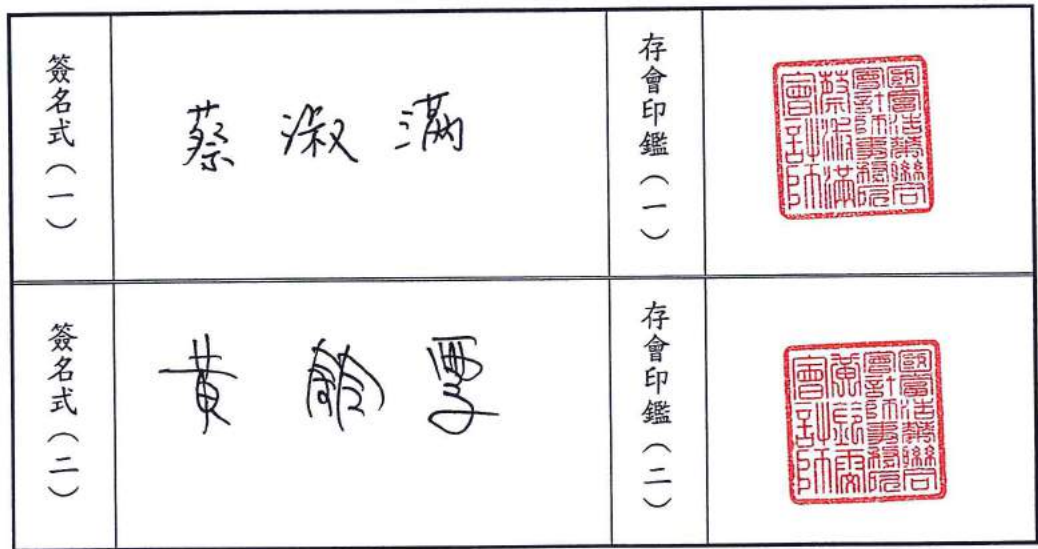 簽名式（一）
蔡 淑 滿
存會印鑑（一）
國富浩華聯合
會計師事務所
蔡淑滿
會計師
簽名式（二）
黃 鈴 雯
存會印鑑（二）
國富浩華聯合
會計師事務所
黃鈴雯
會計師